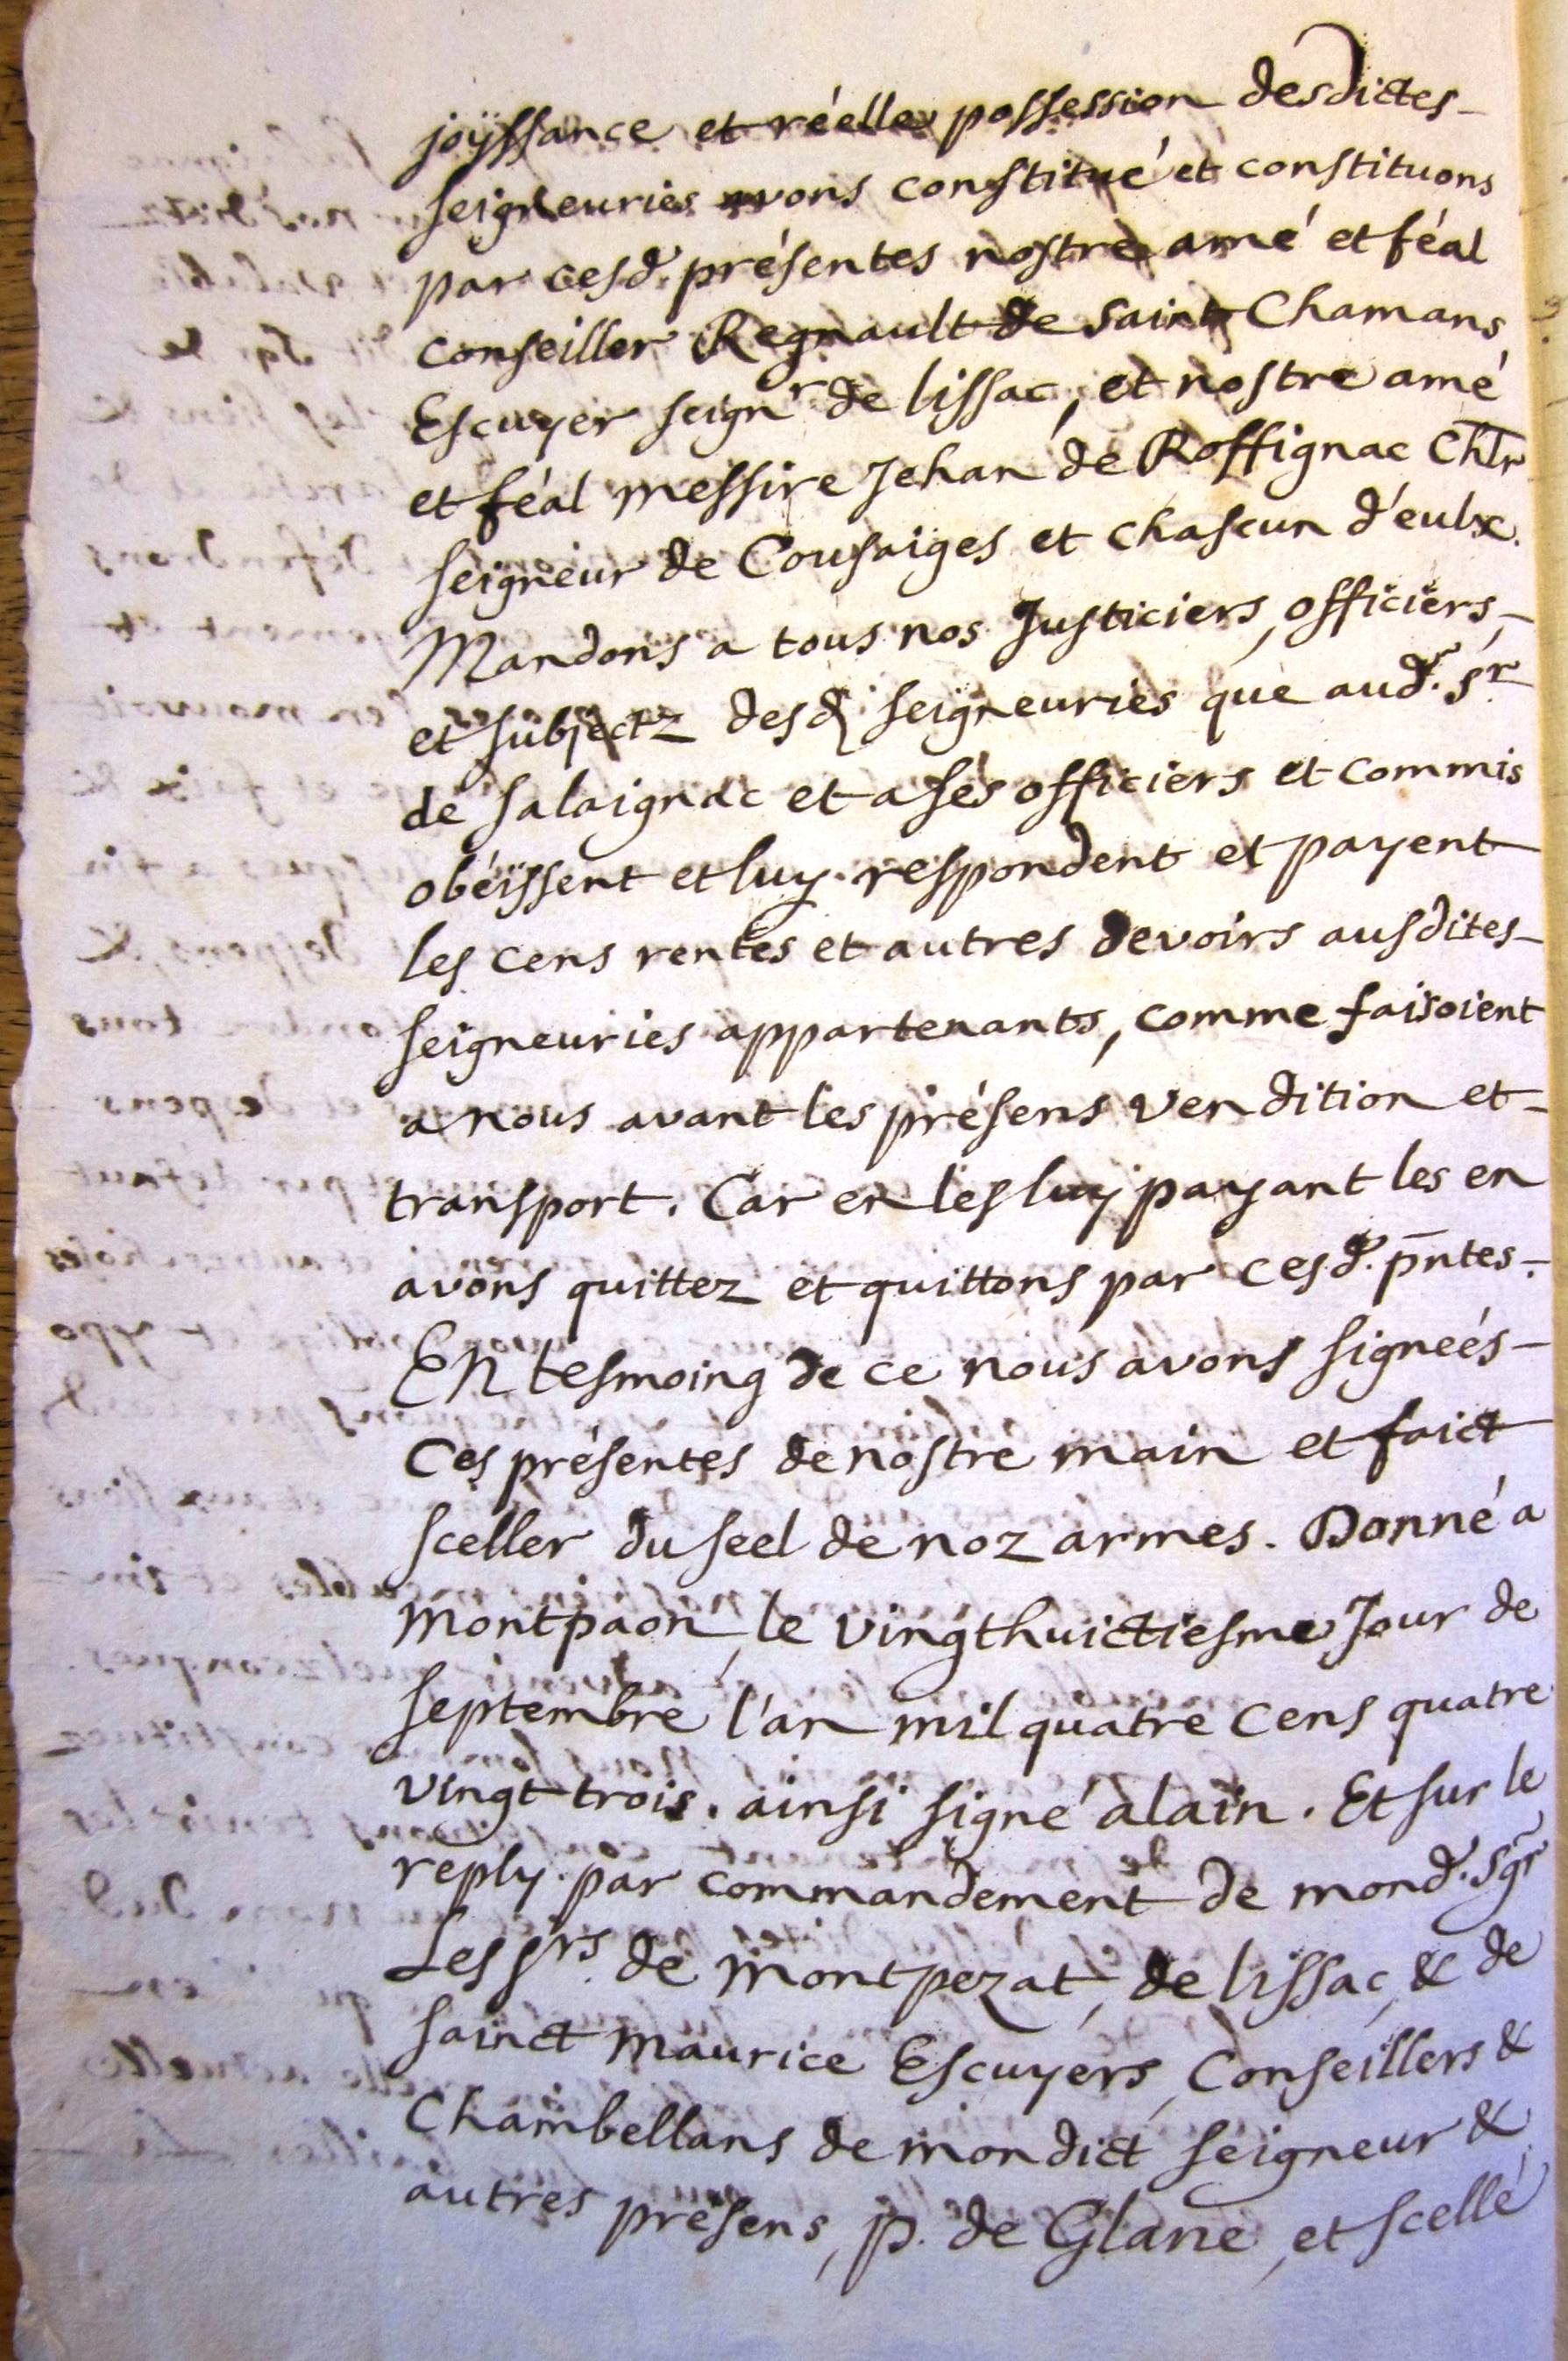 joÿssance et réelle possession desdictes
seigneuries avons constitué et constituons
par cesd. présentes nostre amé et féal
conseiller Regnault de Saint Chamans
Escuyer seignr de lissac, et nostre amé
et féal messire Jehan de Roffignac Chlr
seigneur de Cousaiges et chascun d'eulx.
Mandons a tous nos Justiciers, officiers,
et subjectz desd. seigneuries que aud. Sr
de salaignac et a ses officiers et commis
obéissent et luy respondent et payent
les cens rentes et autres devoirs ausdites
seigneuries appartenants, comme faisoient
a nous avant les présens vendition et
transport. Car en les luy payant les en
avons quittez et quittons par cesd. pntes.
En tesmoing de ce nous avons signeés
Ces présentes de nostre main et faict
sceller du seel de noz armes. Donné a
Montpaon, le vingthuictiesme Jour de
septembre l'an mil quatre cens quatre
vingt trois. ainsi signé alain. Et sur le
reply. par commandement de mond. Sgr
Les Srs. de Montpezat, de lissac, & de
sainct Maurice Escuyers, Conseillers &
Chambellans de mondict seigneur &
autres présens, p. de Glane, et scellé